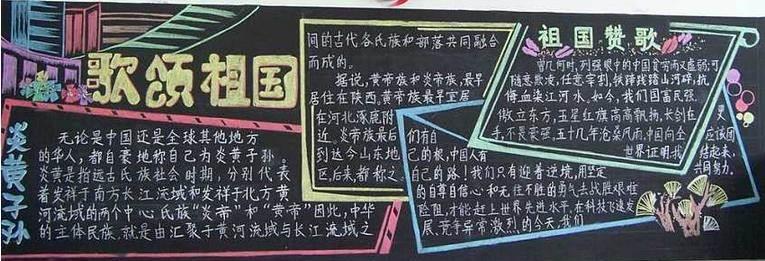 歌颂祖国
炎黄子孙
无论是中国还是全球其他地方
的华人,都自豪地称自己为炎黄子孙。
炎黄是指远古氏族社会时期,分别代表
着发祥于南方长江流域和发祥于北方黄
河流域的两个中心氏族“炎帝”和“黄帝”因此,中华
的立体民族,就是由汇聚于黄河流域与长江流域之
间的古代各氏族和部落共同融合
而成的。
据说,黄帝族和炎帝族,最早
居住在陕西,黄帝族最早定居
在河北涿鹿附
近,炎帝族最后
到达今山东地
区,后来,都称之
祖国赞歌
曾几何时,列强眼中的中国贫穷而又虚弱;可
随意欺凌,任意宰割,铁蹄践踏山河碎,抗
傅血染江河水,如今,我们国富民强
傲立东方,五星红旗高高飘扬,长剑在
手,不畏荣强,五十几年沧桑风雨,中国向全
世界证明我
们有自
己的根,中国人有
自己的路!我们只有迎着逆境,用坚定
的自尊自信心和无往不胜的勇气去战胜艰难
险阻,才能赶上世界先进水平,在科技飞速发
展、竞争异常激烈的今天,我们
又
应该团
结起来,
共同努力.